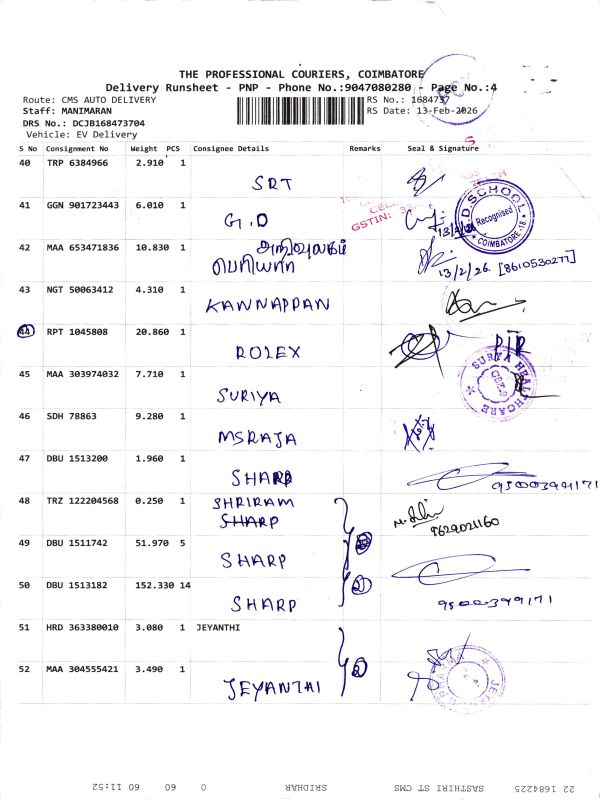 THE PROFESSIONAL COURIERS, COIMBATORE
Delivery Runsheet - PNP - Phone No.:9047080280 - Page No.:4
Route: CMS AUTO DELIVERY
RS No.: 1684737
Staff: MANIMARAN
RS Date: 13-Feb-2026
DRS No.: DCJB168473704
Vehicle: EV Delivery
S No Consignment No Weight PCS Consignee Details Remarks Seal & Signature
40 TRP 6384966 2.910 1
SRT
41 GGN 901723443 6.010 1
G.D
GSTIN: 33
13/2/26
G.D. SCHOOL
Recognised
COIMBATORE-18.
42 MAA 653471836 10.830 1
அறிவுலகம்
பெரியார்
13/2/26. [8610530277]
43 NGT 50063412 4.310 1
KANNAPPAN
44 RPT 1045808 20.860 1
ROLEX
45 MAA 303974032 7.710 1
SURIYA
SURYA HEALTHCARE
CBE-2
46 SDH 78863 9.280 1
MSRAJA
47 DBU 1513200 1.960 1
SHARP
9500394171
48 TRZ 122204568 0.250 1
SHRIRAM
SHARP
9629021160
49 DBU 1511742 51.970 5
SHARP
50 DBU 1513182 152.330 14
SHARP
2
9500394171
51 HRD 363380010 3.080 1 JEYANTHI
52 MAA 304555421 3.490 1
JEYANTHI
2
22 1684225 SASTHIRI ST CMS SRIDHAR 0 60 60 11:52